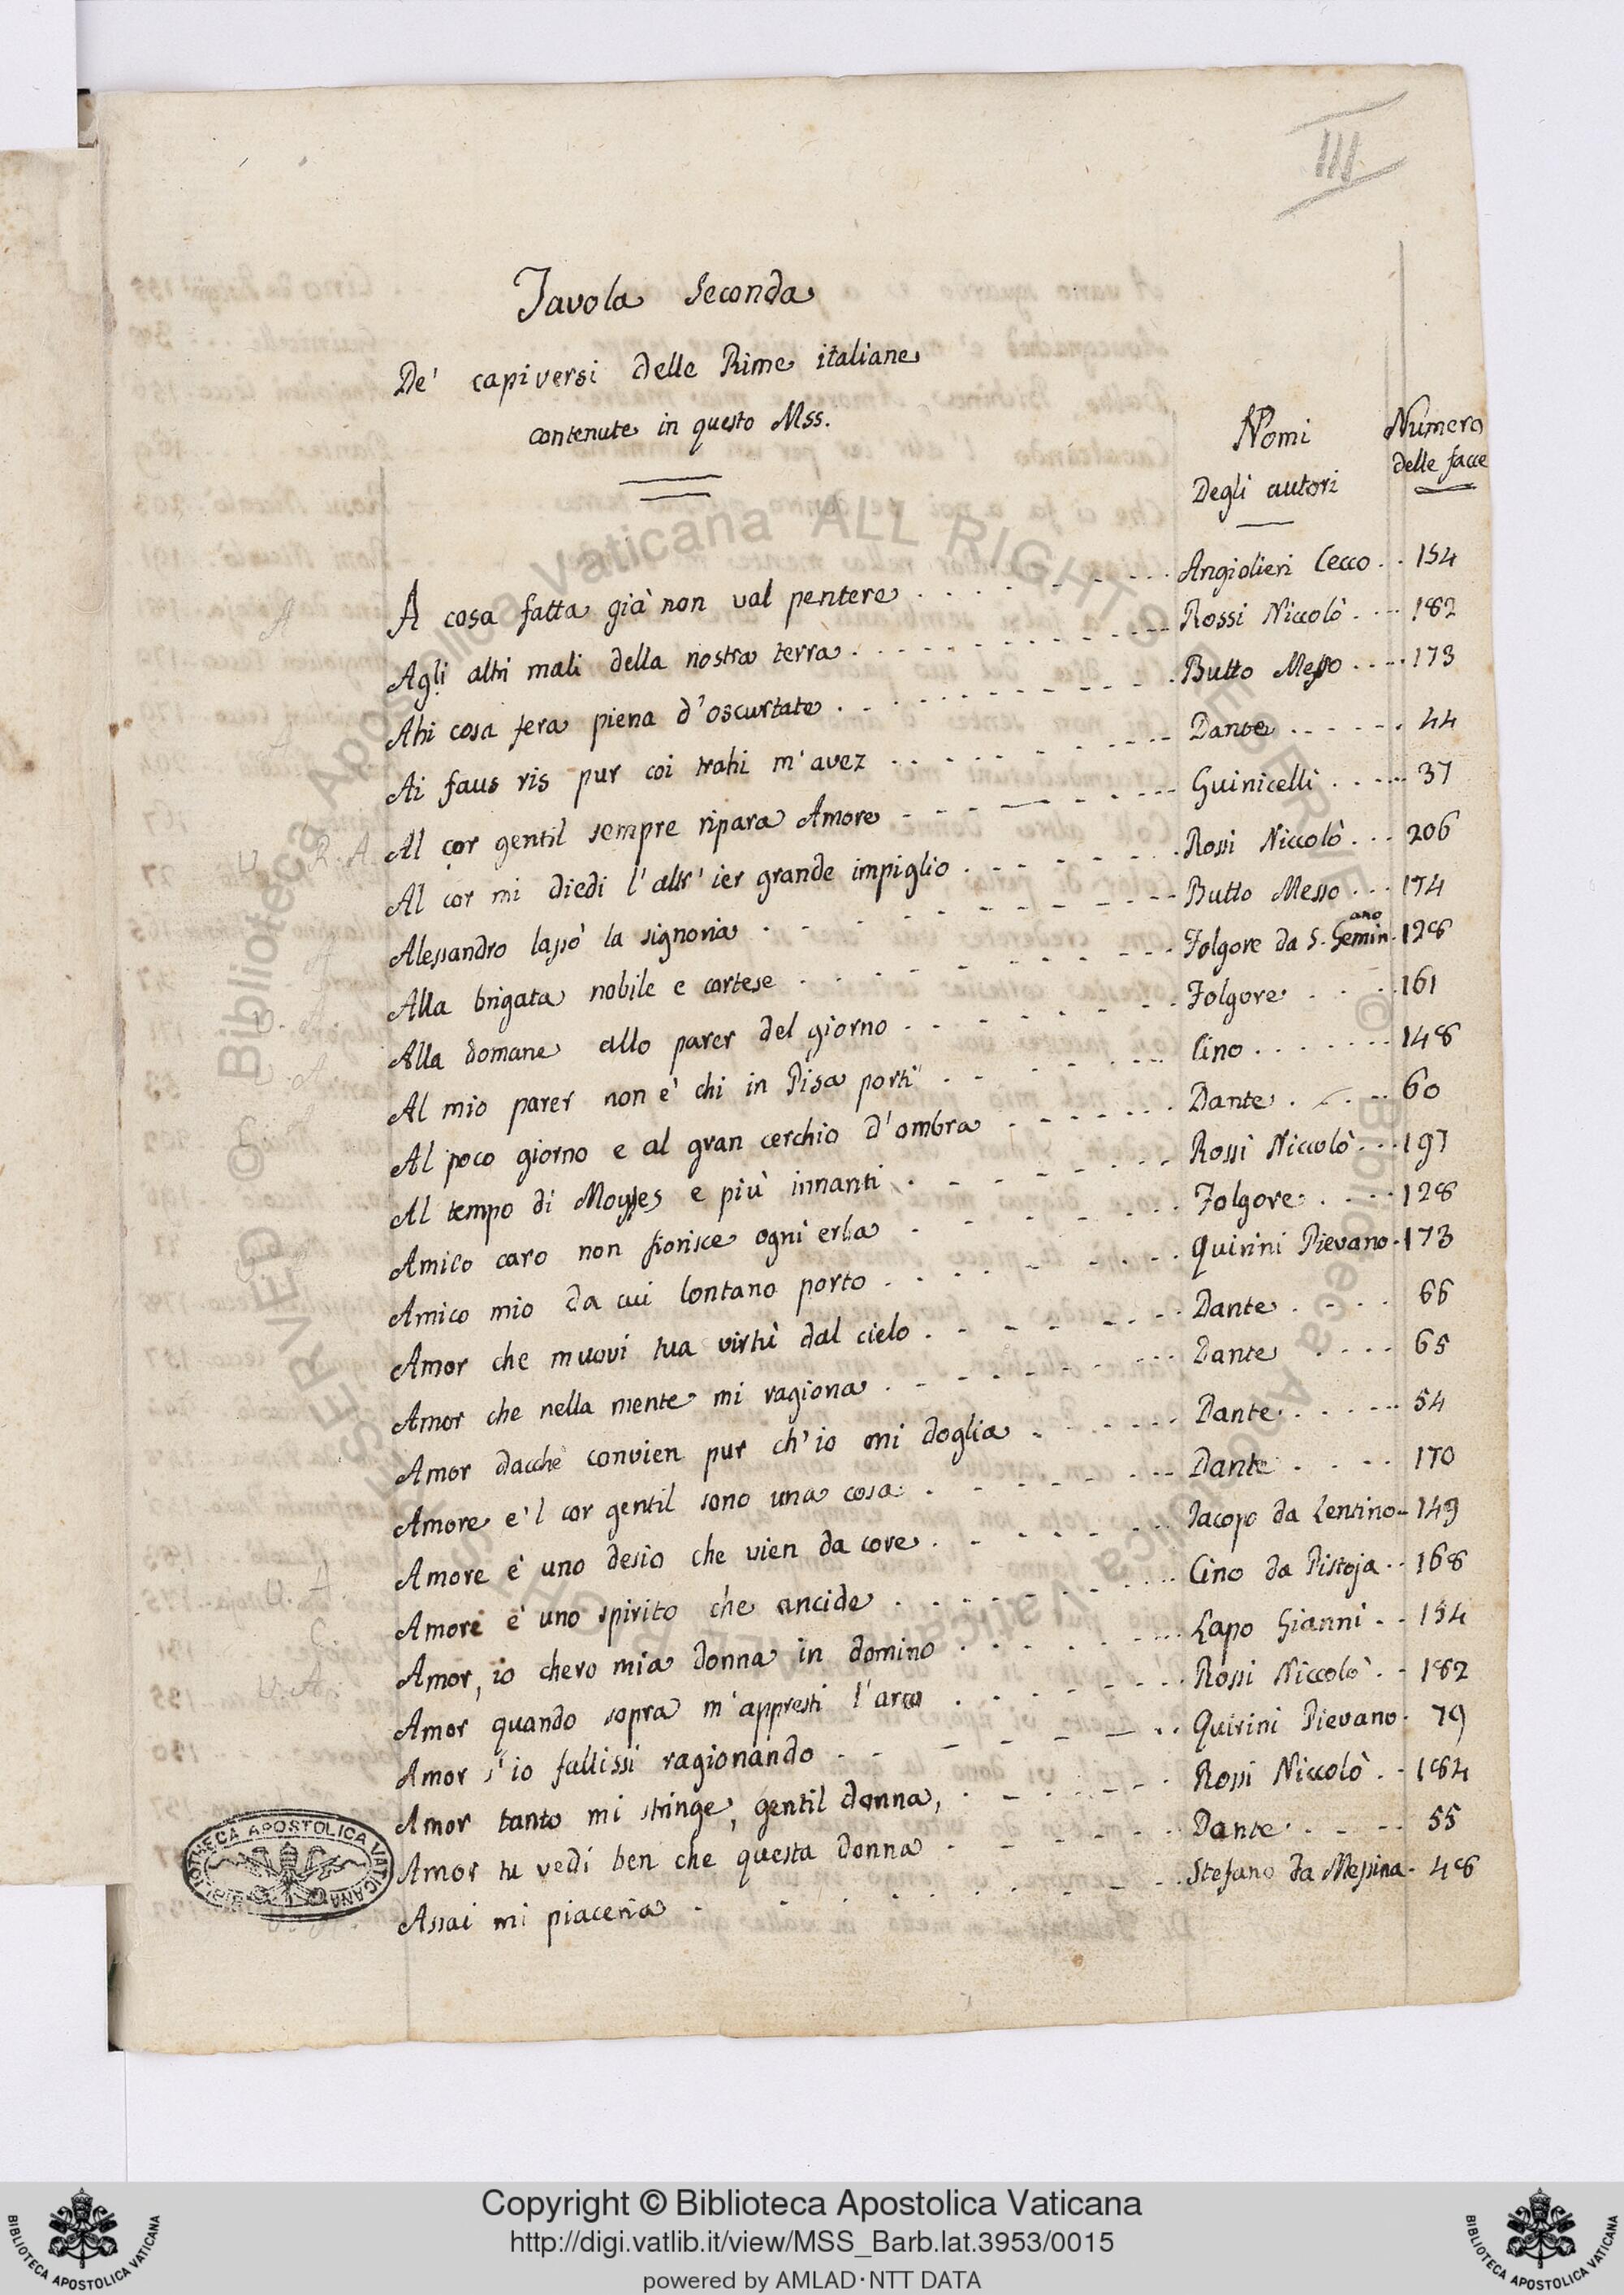 III
Tavola Seconda
De' capiversi delle Rime italiane
contenute in questo Mss.
Nomi
Degli autori
Numero
delle facce
A cosa fatta già non val pentere . . . . Angiolieri Cecco . . 154
Agli altri mali della nostra terra . . . . Rossi Niccolò . . . 182
Ahi cosa fera piena d'oscurtate . . . . Butto Messo . . . . 173
Ai faus ris pur coi trahi m'avez . . . . Dante . . . . . . 44
Al cor gentil sempre ripara Amore . . . . Guinicelli . . . . . 37
Al cor mi diedi l'altr'ier grande impiglio . . . . Rossi Niccolò . . . 206
Alessandro lassò la signoria . . . . Butto Messo . . . 174
Alla brigata nobile e cortese . . . . Folgore da S. Geminano . 128
Alla domane allo parer del giorno . . . . Folgore . . . . 161
Al mio parer non è chi in Pisa porti . . . . Cino . . . . . . . 148
Al poco giorno e al gran cerchio d'ombra . . . . Dante . . . . 60
Al tempo di Moyses e più innanti . . . . Rossi Niccolò . . . 197
Amico caro non fiorisce ogni erba . . . . Folgore . . . . 128
Amico mio da cui lontano porto . . . . Quirini Pievano . 173
Amor che muovi tua virtù dal cielo . . . . Dante . . . . 66
Amor che nella mente mi ragiona . . . . Dante . . . . 65
Amor dacchè convien pur ch'io mi doglia . . . . Dante . . . . . 54
Amore e'l cor gentil sono una cosa . . . . Dante . . . . 170
Amore è uno desio che vien da core . . . . Jacopo da Lentino . . 149
Amore è uno spirito che ancide . . . . Cino da Pistoja . . 168
Amor, io chero mia donna in domino . . . . Lapo Gianni . . 154
Amor quando sopra m'appresti l'arco . . . . Rossi Niccolò . . 182
Amor s'io fallissi ragionando . . . . Quirini Pievano . 79
Amor tanto mi stringe, gentil donna, . . . . Rossi Niccolò . . 184
Amor tu vedi ben che questa donna . . . . Dante . . . . 55
Assai mi piaceria . . . . Stefano da Messina . 48
BIBLIOTHECA APOSTOLICA VATICANA
Copyright © Biblioteca Apostolica Vaticana
http://digi.vatlib.it/view/MSS_Barb.lat.3953/0015
powered by AMLAD·NTT DATA
BIBLIOTECA APOSTOLICA VATICANA
BIBLIOTECA APOSTOLICA VATICANA